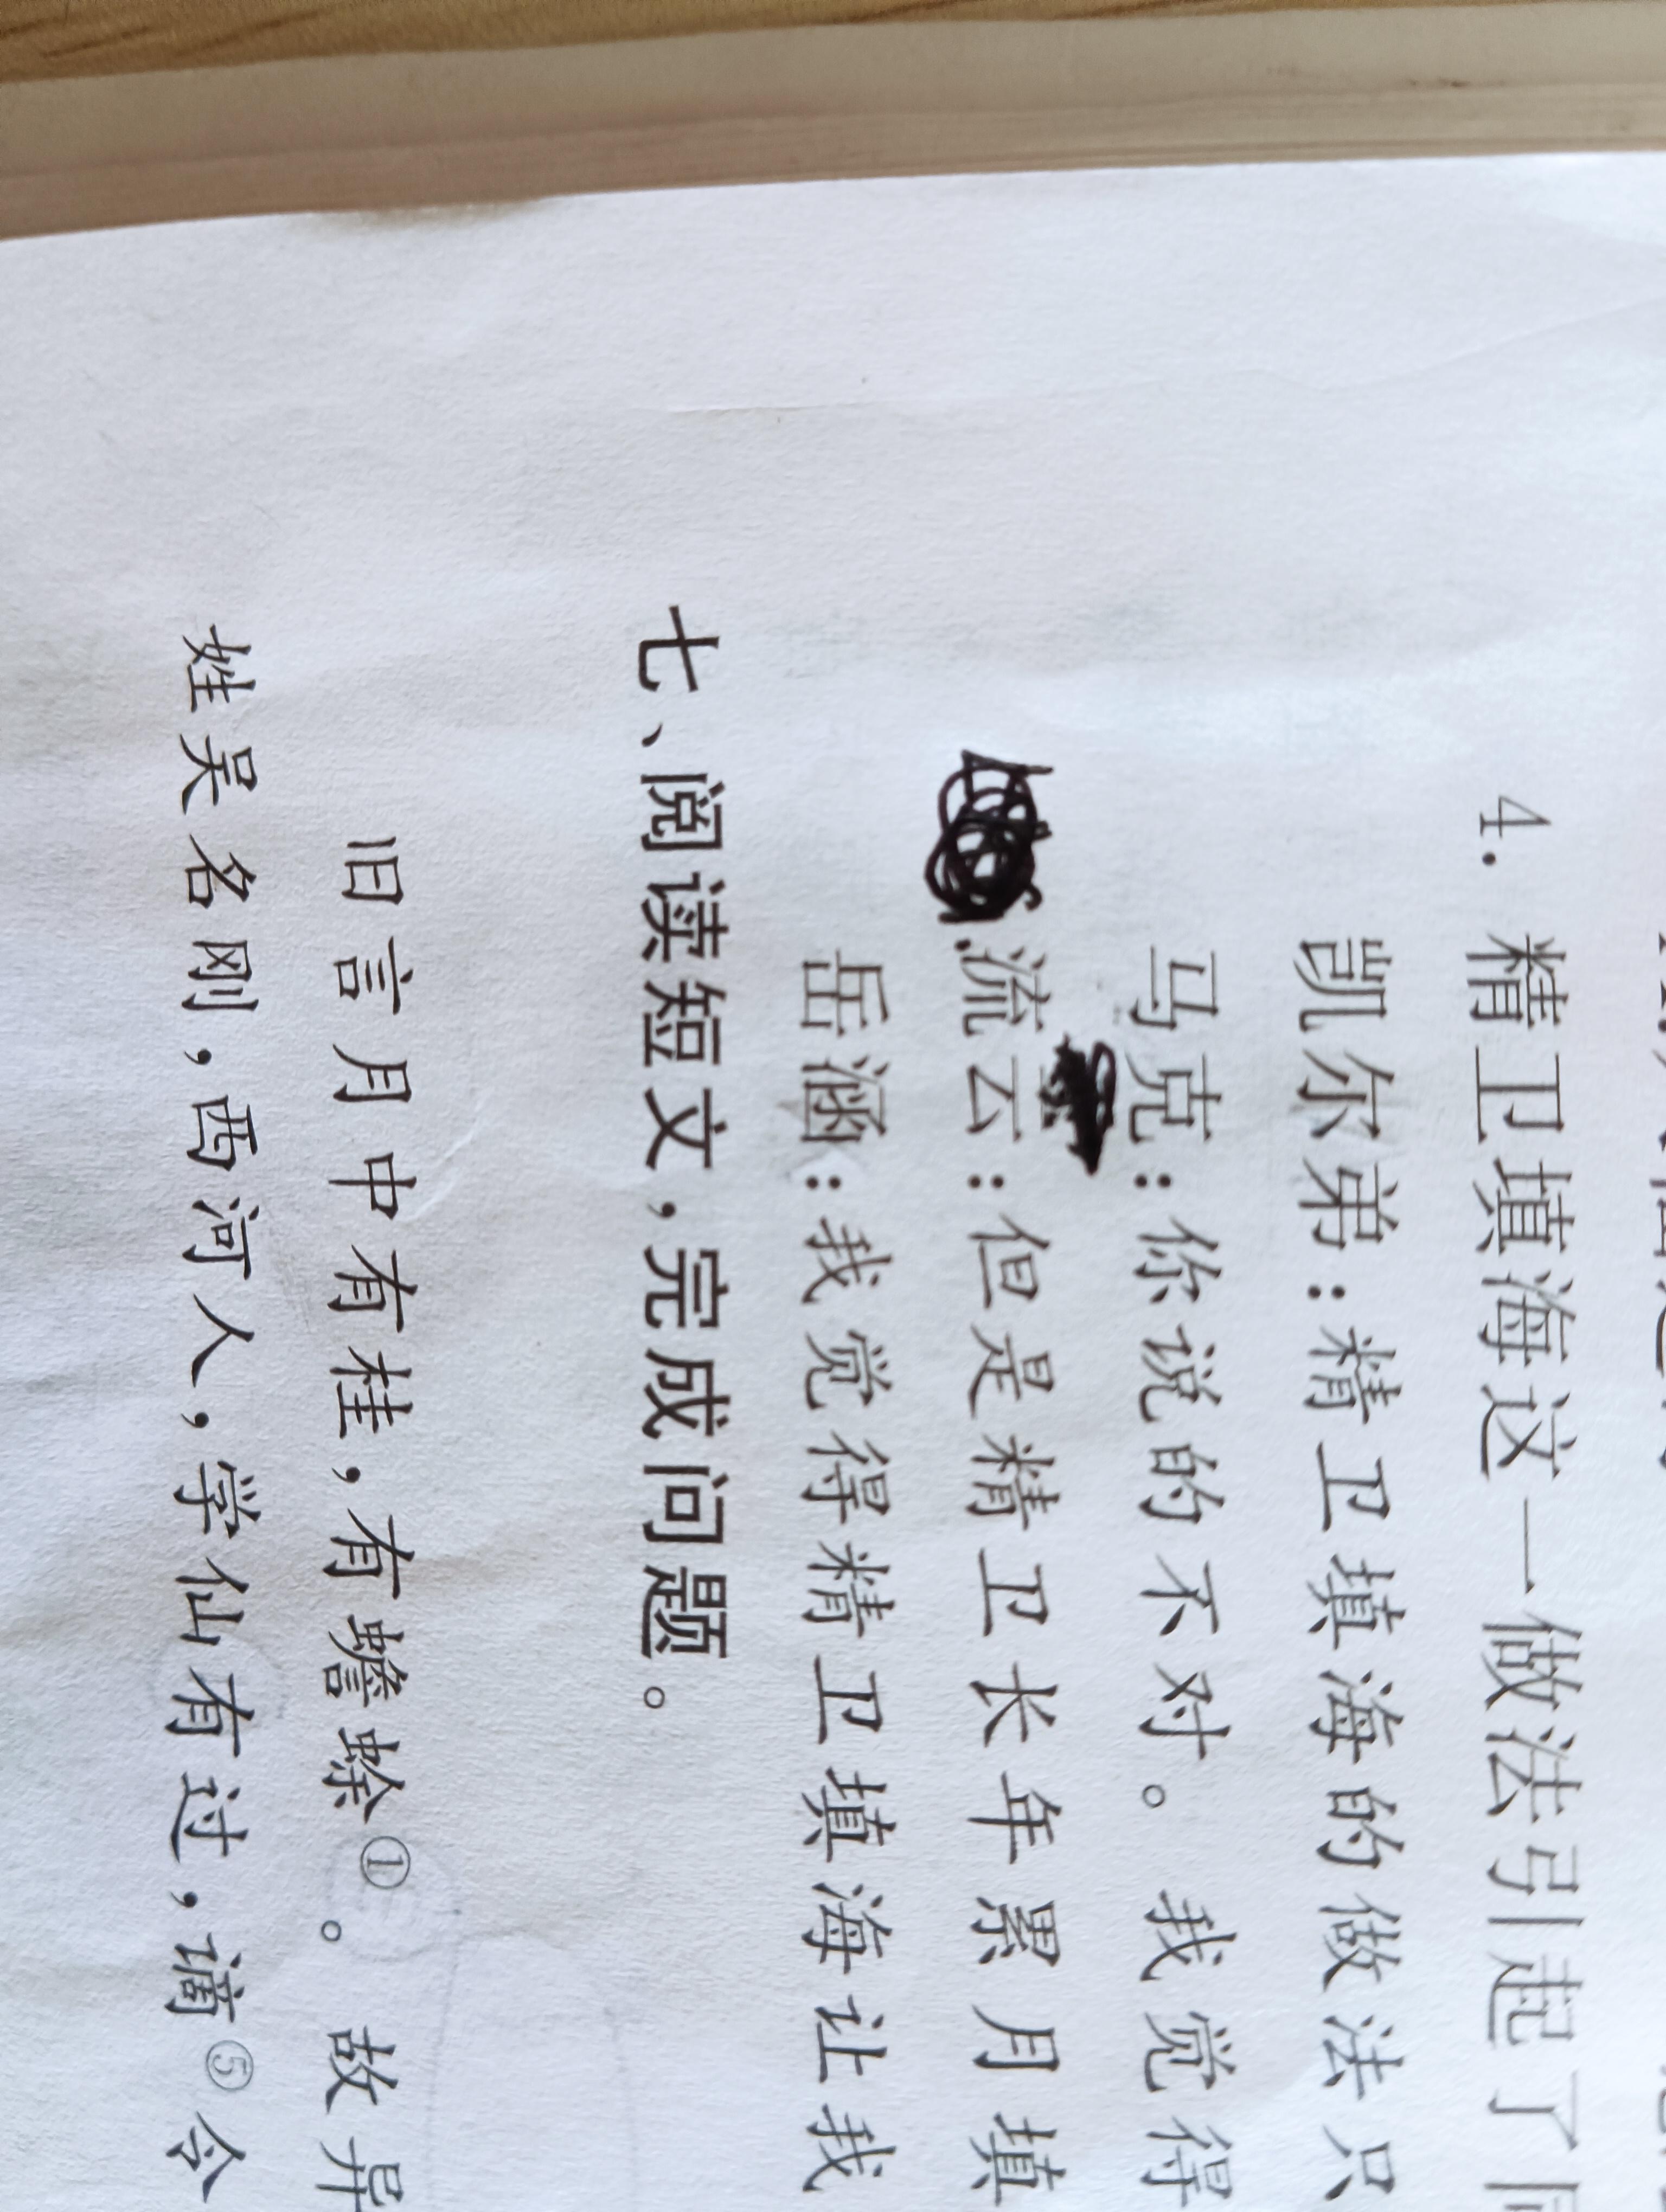 4. 精卫填海这一做法引起了
凯尔弟：精卫填海的做法只
马克：你说的不对。我觉得
流云：但是精卫长年累月填
岳涵：我觉得精卫填海让我
七、阅读短文，完成问题。
旧言月中有桂，有蟾蜍①。故异
姓吴名刚，西河人，学仙有过，谪⑤令